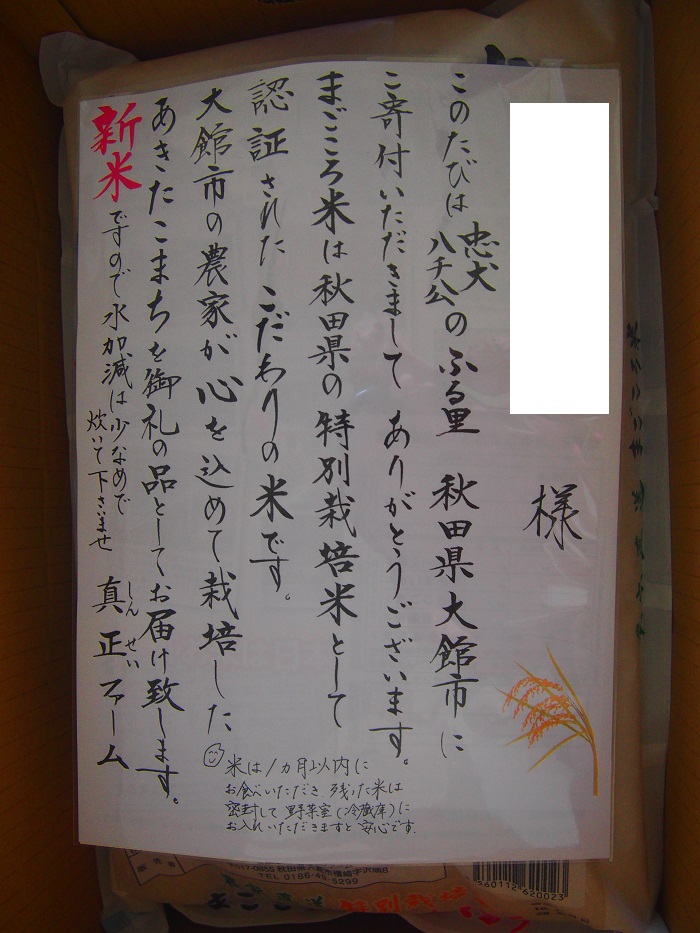 様
このたびは忠犬ハチ公のふる里 秋田県大館市に
ご寄付いただきまして ありがとうございます。
まごころ米は秋田県の特別栽培米として
認証された こだわりの米です。
大館市の農家が心を込めて栽培した
あきたこまちを御礼の品としてお届け致します。
新米ですので水加減は少なめで
炊いて下さいませ
真正ファーム
しんせい
米は1カ月以内に
お食べいただき 残った米は
密封して 野菜室(冷蔵庫)に
お入れいただきますと安心です。
TEL 0186-49-5299
特別栽培
560112 620023